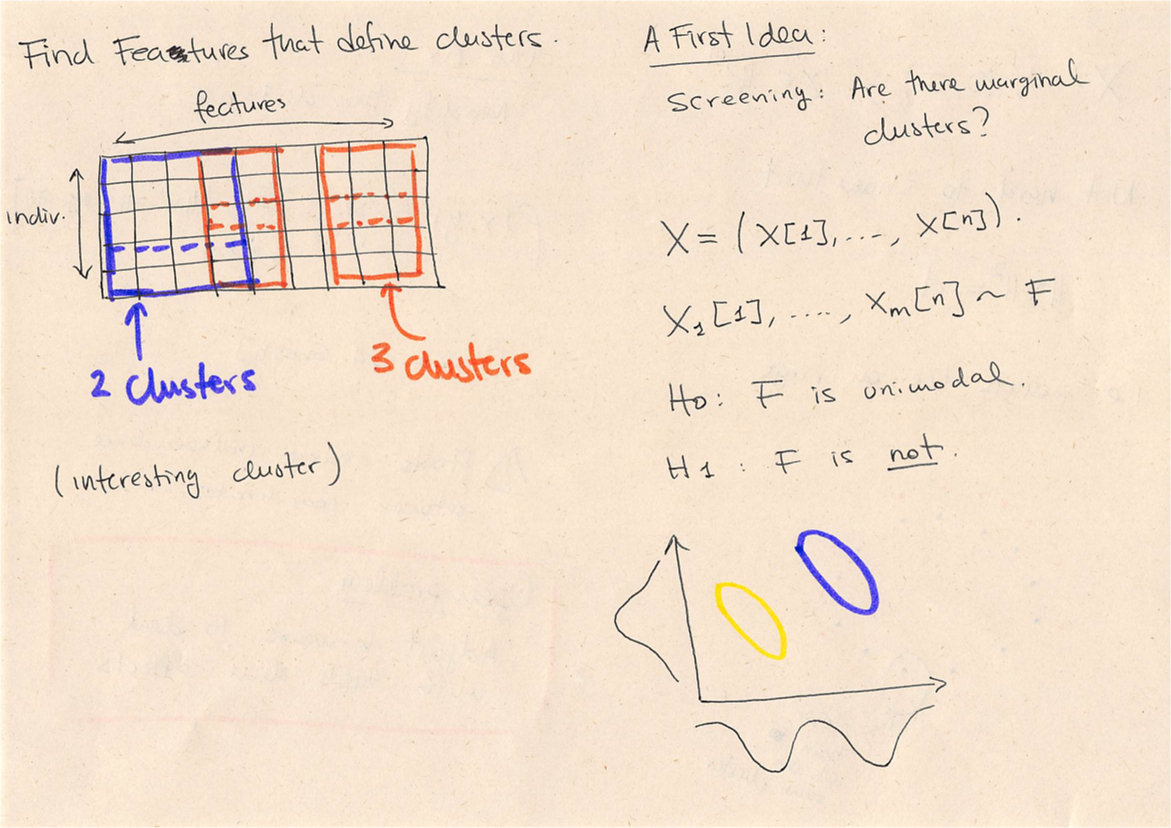 Find Features that define clusters.
features
indiv.
2 clusters
3 clusters
(interesting cluster)
A First Idea:
Screening: Are there marginal
clusters?
X = (X[1], ..., X[n]).
X₁[1], ...., Xm[n] ~ F
H0: F is unimodal.
H1: F is not.